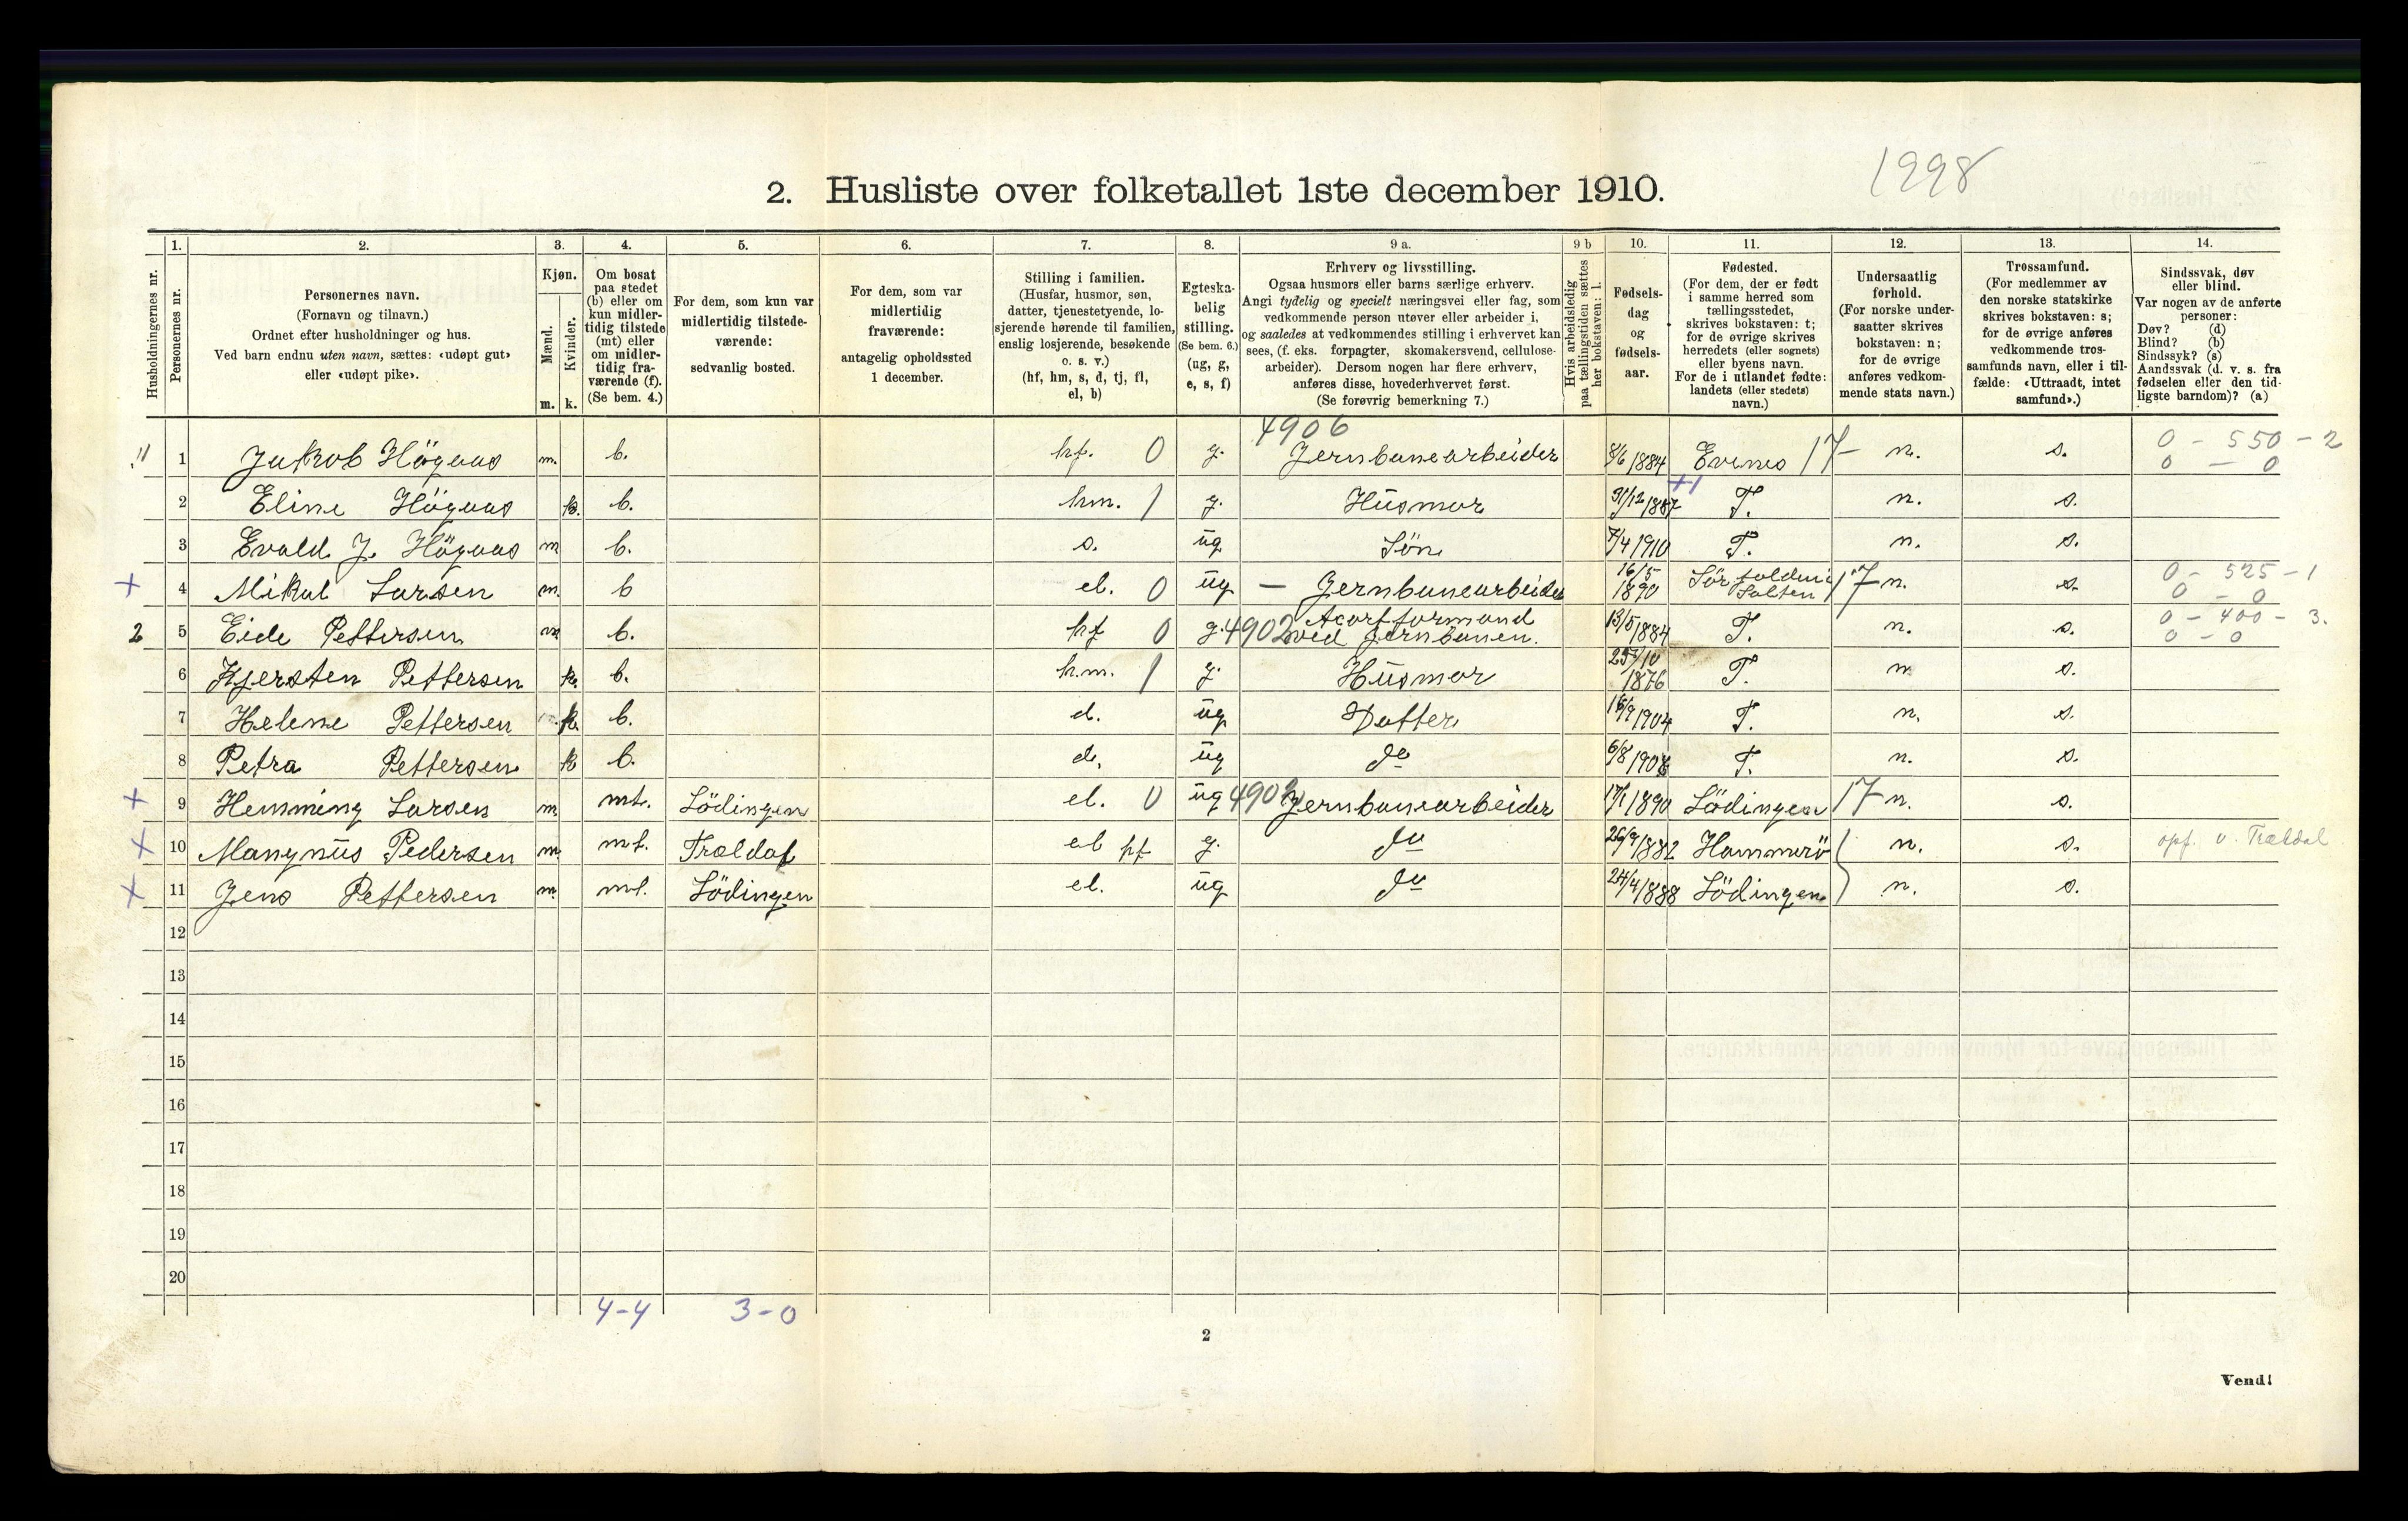 1998
2. Husliste over folketallet 1ste december 1910.
Husholdningernes nr.
1. Personernes nr.
2. Personernes navn. (Fornavn og tilnavn.) Ordnet efter husholdninger og hus. Ved barn endnu uten navn, sættes: «udøpt gut» eller «udøpt pike».
3. Kjøn. Mænd. m. Kvinder. k.
4. Om bosat paa stedet (b) eller om kun midlertidig tilstede (mt) eller om midlertidig fraværende (f). (Se bem. 4.)
5. For dem, som kun var midlertidig tilstedeværende: sedvanlig bosted.
6. For dem, som var midlertidig fraværende: antagelig opholdssted 1 december.
7. Stilling i familien. (Husfar, husmor, søn, datter, tjenestetyende, losjerende hørende til familien, enslig losjerende, besøkende o. s. v.) (hf, hm, s, d, tj, fl, el, b)
8. Egteskabelig stilling. (Se bem. 6.) (ug, g, e, s, f)
9 a. Erhverv og livsstilling. Ogsaa husmors eller barns særlige erhverv. Angi tydelig og specielt næringsvei eller fag, som vedkommende person utøver eller arbeider i, og saaledes at vedkommendes stilling i erhvervet kan sees, (f. eks. forpagter, skomakersvend, cellulosearbeider). Dersom nogen har flere erhverv, anføres disse, hovederhvervet først. (Se forøvrig bemerkning 7.)
9 b Hvis arbeidsledig paa tællingstiden sættes her bokstaven: l.
10. Fødselsdag og fødselsaar.
11. Fødested. (For dem, der er født i samme herred som tællingsstedet, skrives bokstaven: t; for de øvrige skrives herredets (eller sognets) eller byens navn. For de i utlandet fødte: landets (eller stedets) navn.)
12. Undersaatlig forhold. (For norske undersaatter skrives bokstaven: n; for de øvrige anføres vedkommende stats navn.)
13. Trossamfund. (For medlemmer av den norske statskirke skrives bokstaven: s; for de øvrige anføres vedkommende trossamfunds navn, eller i tilfælde: «Uttraadt, intet samfund».)
14. Sindssvak, døv eller blind. Var nogen av de anførte personer: Døv? (d) Blind? (b) Sindssyk? (s) Aandssvak (d. v. s. fra fødselen eller den tidligste barndom)? (a)
4906
1 Jakob Högaas m. b. hf. 0 g. Jernbanearbeider 8/6 1884 Evenes 17- n. s. 0 - 550 - 2 0 - 0
2 Eline Högaas k. b. hm. 1 g. Husmor 31/12 1887 T. n. s.
3 Evald J. Högaas m b. s. ug Sön 7/4 1910 T. n. s.
+ 4 Mikal Larsen m. b el. 0 ug — Jernbanearbeider 16/5 1890 17 n. s. 0 - 525 - 1 0 - 0
2 5 Eide Pettersen m b. hf 0 g. 4902 Acortformand ved Jernbanen. 13/5 1884 T. n. s. 0 - 400 - 3. 0 - 0
6 Kjersten Pettersen k. b. h.m. 1 g. Husmor 25/10 1876 T. n s.
7 Helene Pettersen k. b. d. ug Datter 1904 T. n. s.
8 Petra Pettersen k b. d. ug do 6/8 T. n. s.
+ 9 Hemming Larsen m. mt. Lödingen el. 0 ug Jernbanearbeider 17/1 1890 Lödingen 17 n. s.
+ 10 Mangnus Pedersen m mt. Traldal el hf g. do 26/9 1882 Hammerö n. s. opf. v. Traldal
+ 11 Jens Pettersen m. mt. Lödingen el. ug do 24/4 1888 Lödingen n. s.
12
13
14
15
16
17
18
19
20
4-4 3-0
2
Vend!